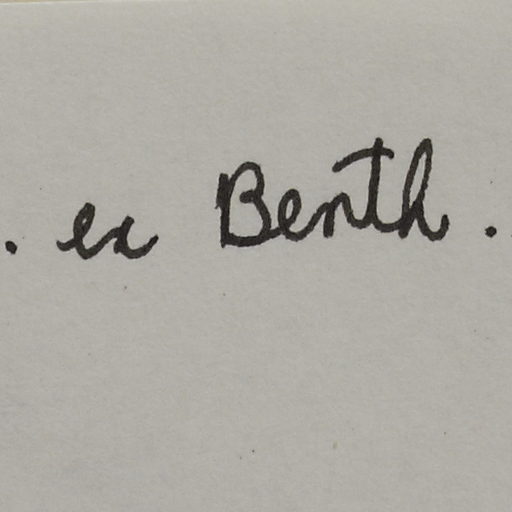 . ex Benth.